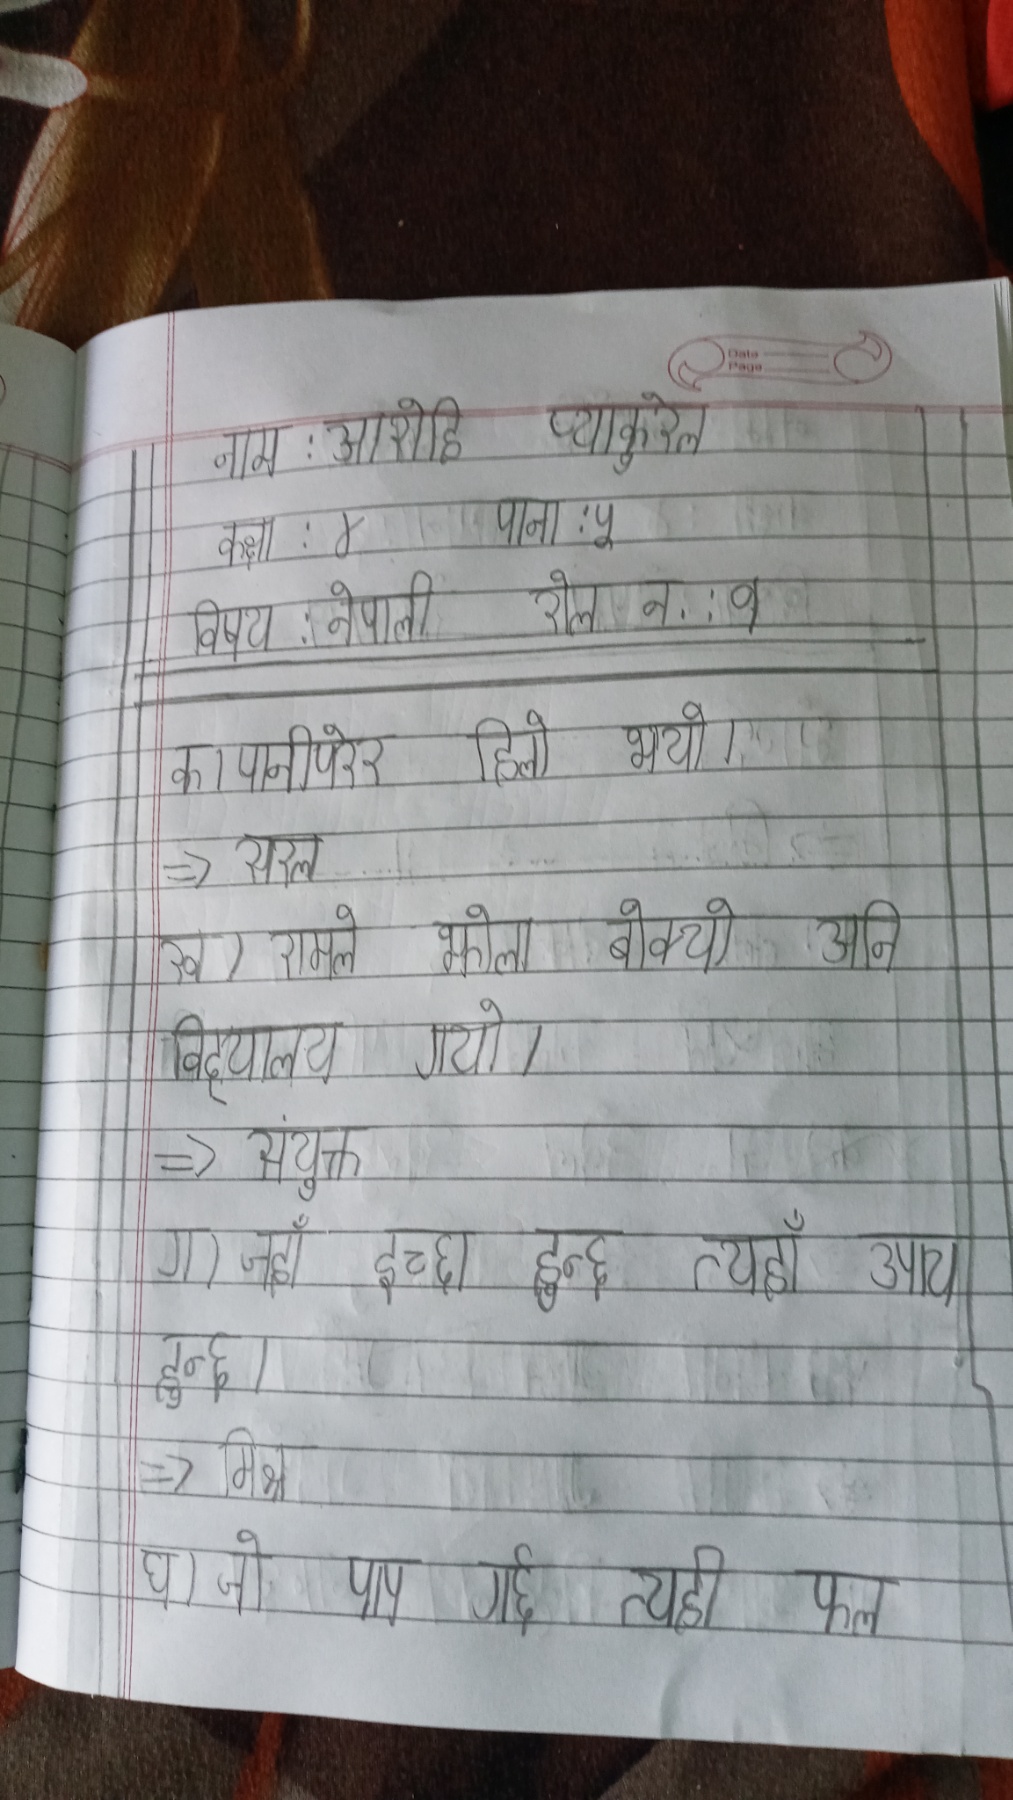 Date
Page
नाम : आरोहि प्याकुरेल
कक्षा : ४ पाना : ५
विषय : नेपाली रोल न. : १
क) पानीपरेर हिलो भयो।
=> सरल
ख) रामले झोला बोक्यो अनि
विद्यालय गयो।
=> संयुक्त
ग) जहाँ इच्छा हुन्छ त्यहाँ उपाय
हुन्छ।
=> मिश्र
घ) जो पाप गर्छ त्यही फल